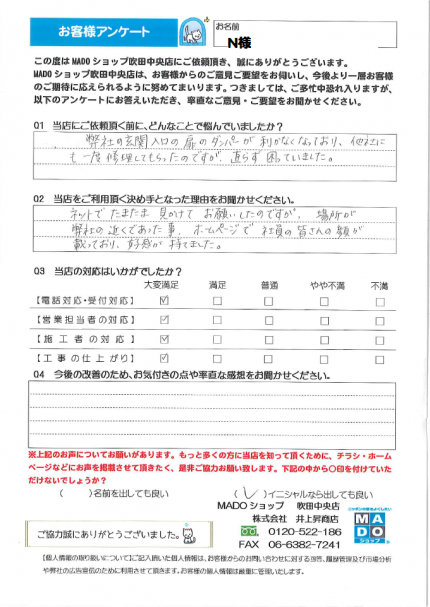 お客様アンケート
お名前
N様
この度は MADO ショップ吹田中央店にご依頼頂き、誠にありがとうございます。
MADO ショップ吹田中央店は、お客様からのご意見ご要望をお伺いし、今後より一層お客様
のご期待に応えられるように努めてまいります。つきましては、ご多忙中恐れ入りますが、
以下のアンケートにお答えいただき、率直なご意見・ご要望をお聞かせください。
01 当店にご依頼頂く前に、どんなことで悩んでいましたか?
弊社の玄関入口の扉のダンパーが利かなくなっており、他社に
も一度修理してもらったのですが、直らず困っていました。
02 当店をご利用頂く決め手となった理由をお聞かせください。
ネットでたまたま見かけてお願いしたのですが、場所が
弊社の近くであった事、ホームページで社員の皆さんの顔が
載っており、好感が持てました。
03 当店の対応はいかがでしたか?
大変満足 満足 普通 やや不満 不満
【電話対応・受付対応】
【営業担当者の対応】
【施工者の対応】
【工事の仕上がり】
04 今後の改善のため、お気付きの点や率直な感想をお聞かせください。
※上記のお声についてお願いがあります。もっと多くの方に当店を知って頂くために、チラシ・ホーム
ページなどにお声を掲載させて頂きたく、是非ご協力お願い致します。下記の中から〇印を付けていた
だけないでしょうか?
( )名前を出しても良い ( )イニシャルなら出しても良い
MADO ショップ 吹田中央店
株式会社 井上昇商店
0120-522-186
FAX 06-6382-7241
MADO
ショップ
ご協力誠にありがとうございました。
【個人情報の取り扱いについて】ご記入頂いた個人情報は、お客様からのお問い合わせに対する回答、履歴管理及び市場分析
や弊社の広告宣伝のために利用させて頂きます。お客様の個人情報は厳重に管理いたします。